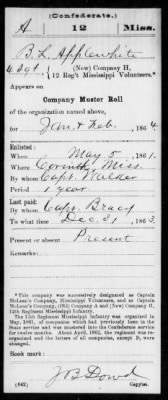 (Confederate.)
A 12 Miss.
B. L. Applewhite
4 Sgt, (New) Company H,
12 Reg't Mississippi Volunteers.*
Appears on
Company Muster Roll
of the organization named above,
for Jan & Feb, 1864.
Enlisted:
When May 5, 1861.
Where Corinth Miss.
By whom Capt. Walker
Period 1 year
Last paid:
By whom Capt. Bracy
To what time Dec 31, 1863.
Present or absent Present
Remarks:
*This company was successively designated as Captain
McLean's Company, Mississippi Volunteers, and as Captain
McLean's Company, (Old) Company A and (New) Company H,
12th Regiment Mississippi Infantry.
The 12th Regiment Mississippi Infantry was organized in
May, 1861, of companies which had previously been in the
State service and was mustered into the Confederate service
for twelve months. About April, 1862, the regiment was
reorganized and the letters of all companies, except D, were
changed.
Book mark:
J B Dowd
(642) Copyist.